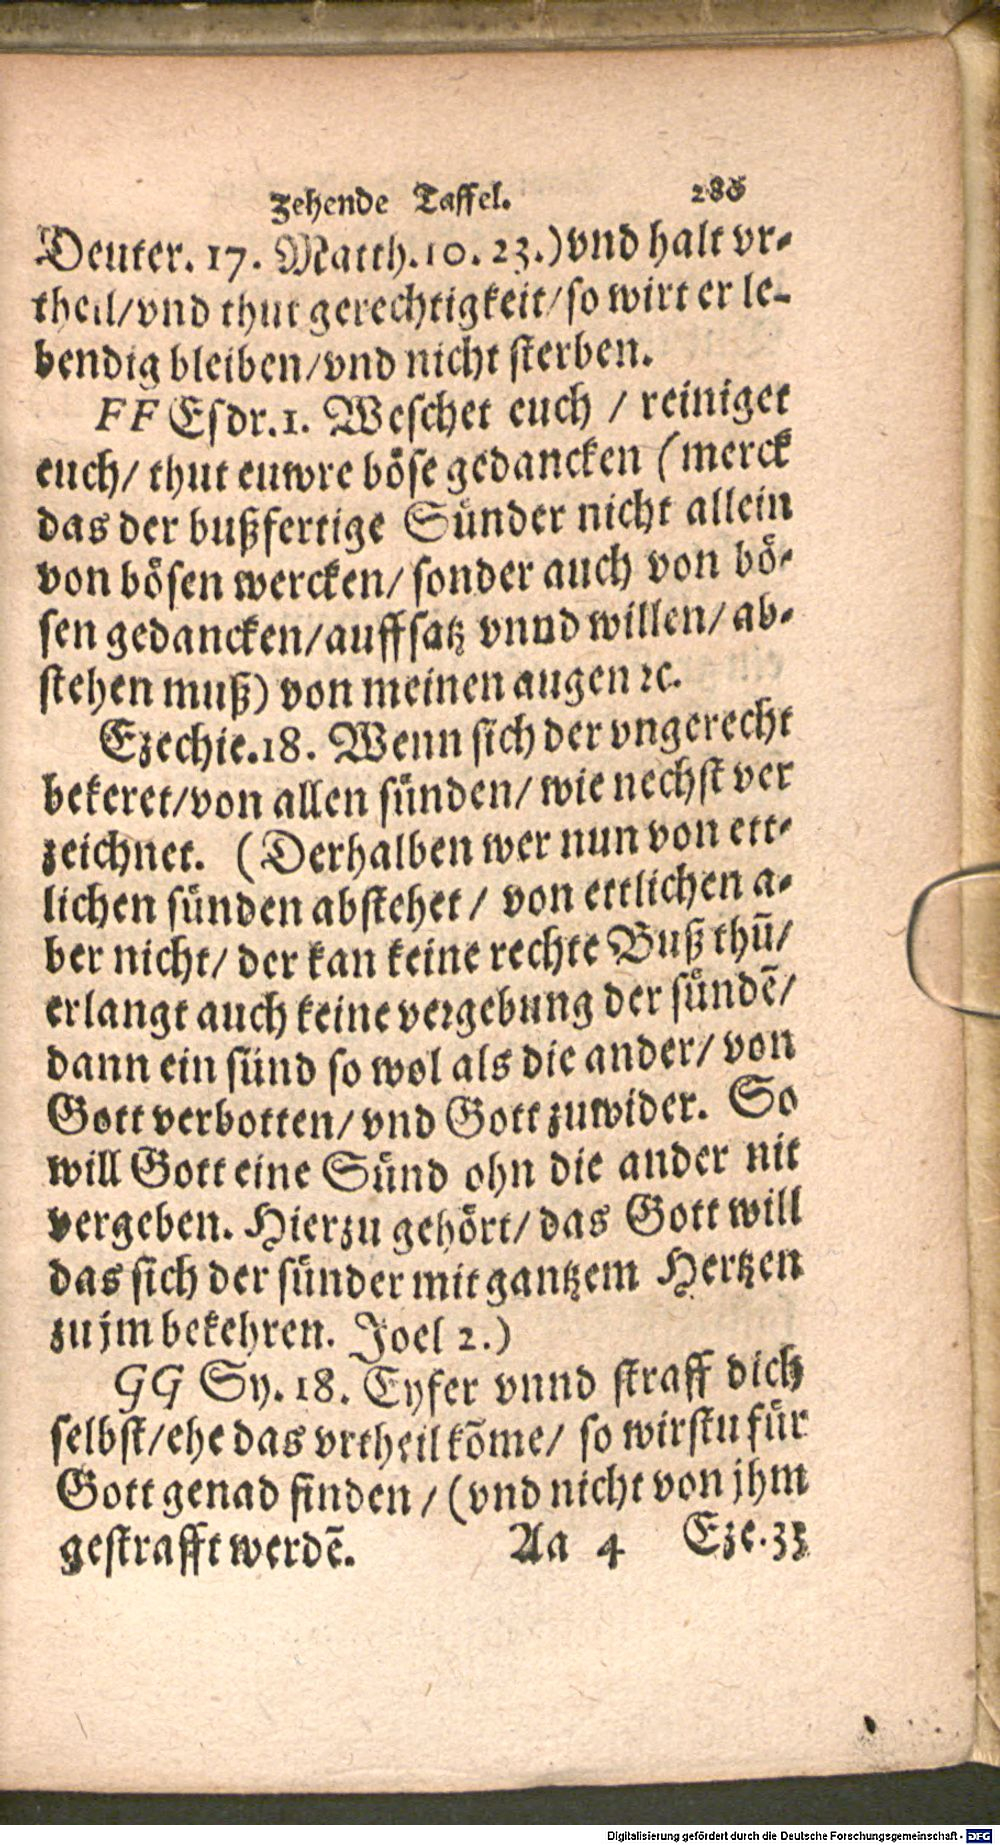 Zehende Taffel. 286
Deuter. 17. Matth. 10. 23.) vnd halt vr⸗
theil/vnd thut gerechtigkeit/so wirt er le⸗
bendig bleiben/vnd nicht sterben.
FF Esdr. 1. Weschet euch / reiniget
euch/ thut euwre böse gedancken (merck
das der bußfertige Sünder nicht allein
von bösen wercken/ sonder auch von bö⸗
sen gedancken/auffsatz vnnd willen/ ab⸗
stehen muß) von meinen augen ꝛc.
Ezechie. 18. Wenn sich der vngerecht
bekeret/von allen sünden/ wie nechst ver
zeichnet. (Derhalben wer nun von ett⸗
lichen sünden abstehet / von ettlichen a⸗
ber nicht/ der kan keine rechte Buß thū/
erlangt auch keine vergebung der sündē/
dann ein sünd so wol als die ander/ von
Gott verbotten/ vnd Gott zuwider. So
will Gott eine Sünd ohn die ander nit
vergeben. Hierzu gehört/ das Gott will
das sich der sünder mit gantzem Hertzen
zu jm bekehren. Joel 2.)
GG Sy. 18. Eyfer vnnd straff dich
selbst/ehe das vrtheil kōme/ so wirstu für
Gott genad finden / (vnd nicht von jhm
gestrafft werdē. Aa 4 Eze. 33
Digitalisierung gefördert durch die Deutsche Forschungsgemeinschaft - DFG